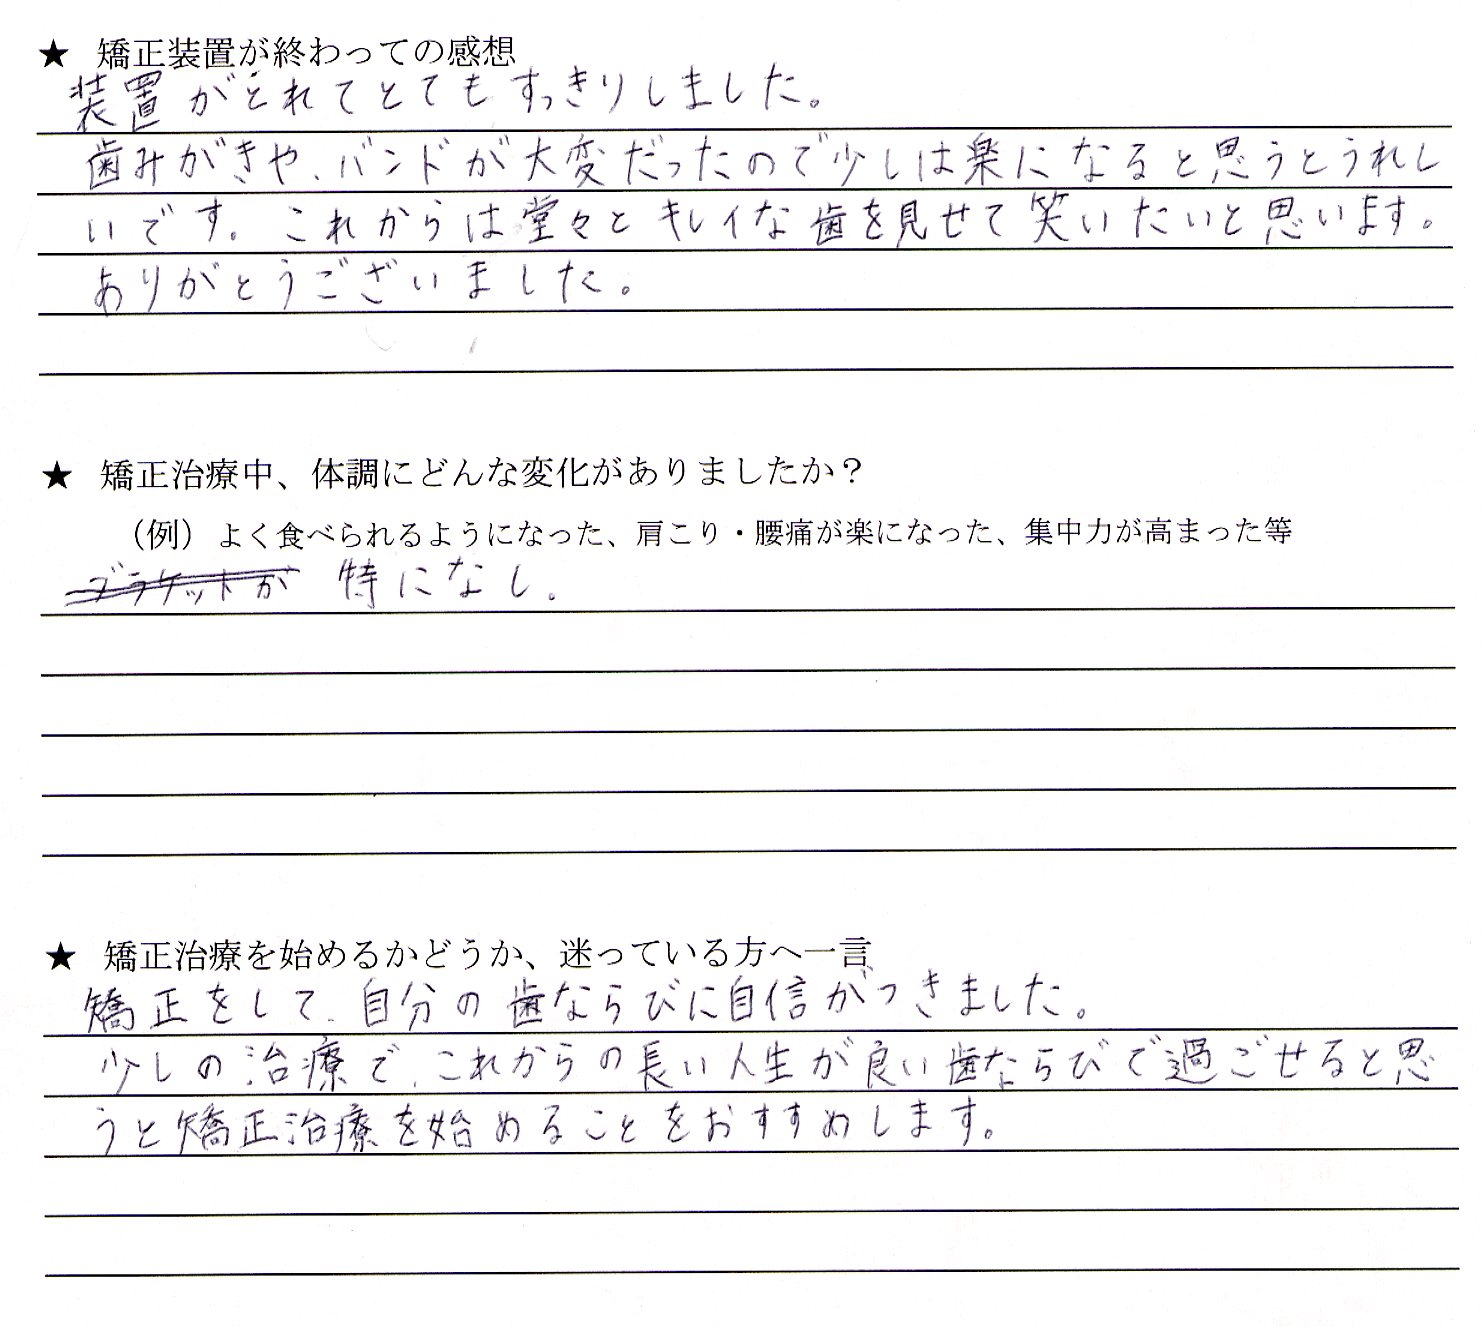 ★ 矯正装置が終わっての感想
装置がとれてとてもすっきりしました。
歯みがきや、バンドが大変だったので少しは楽になると思うとうれし
いです。これからは堂々とキレイな歯を見せて笑いたいと思います。
ありがとうございました。
★ 矯正治療中、体調にどんな変化がありましたか？
（例）よく食べられるようになった、肩こり・腰痛が楽になった、集中力が高まった等
ブラケットが 特になし.
★ 矯正治療を始めるかどうか、迷っている方へ一言
矯正をして、自分の歯ならびに自信がつきました。
少しの治療で、これからの長い人生が良い歯ならびで過ごせると思
うと矯正治療を始めることをおすすめします。